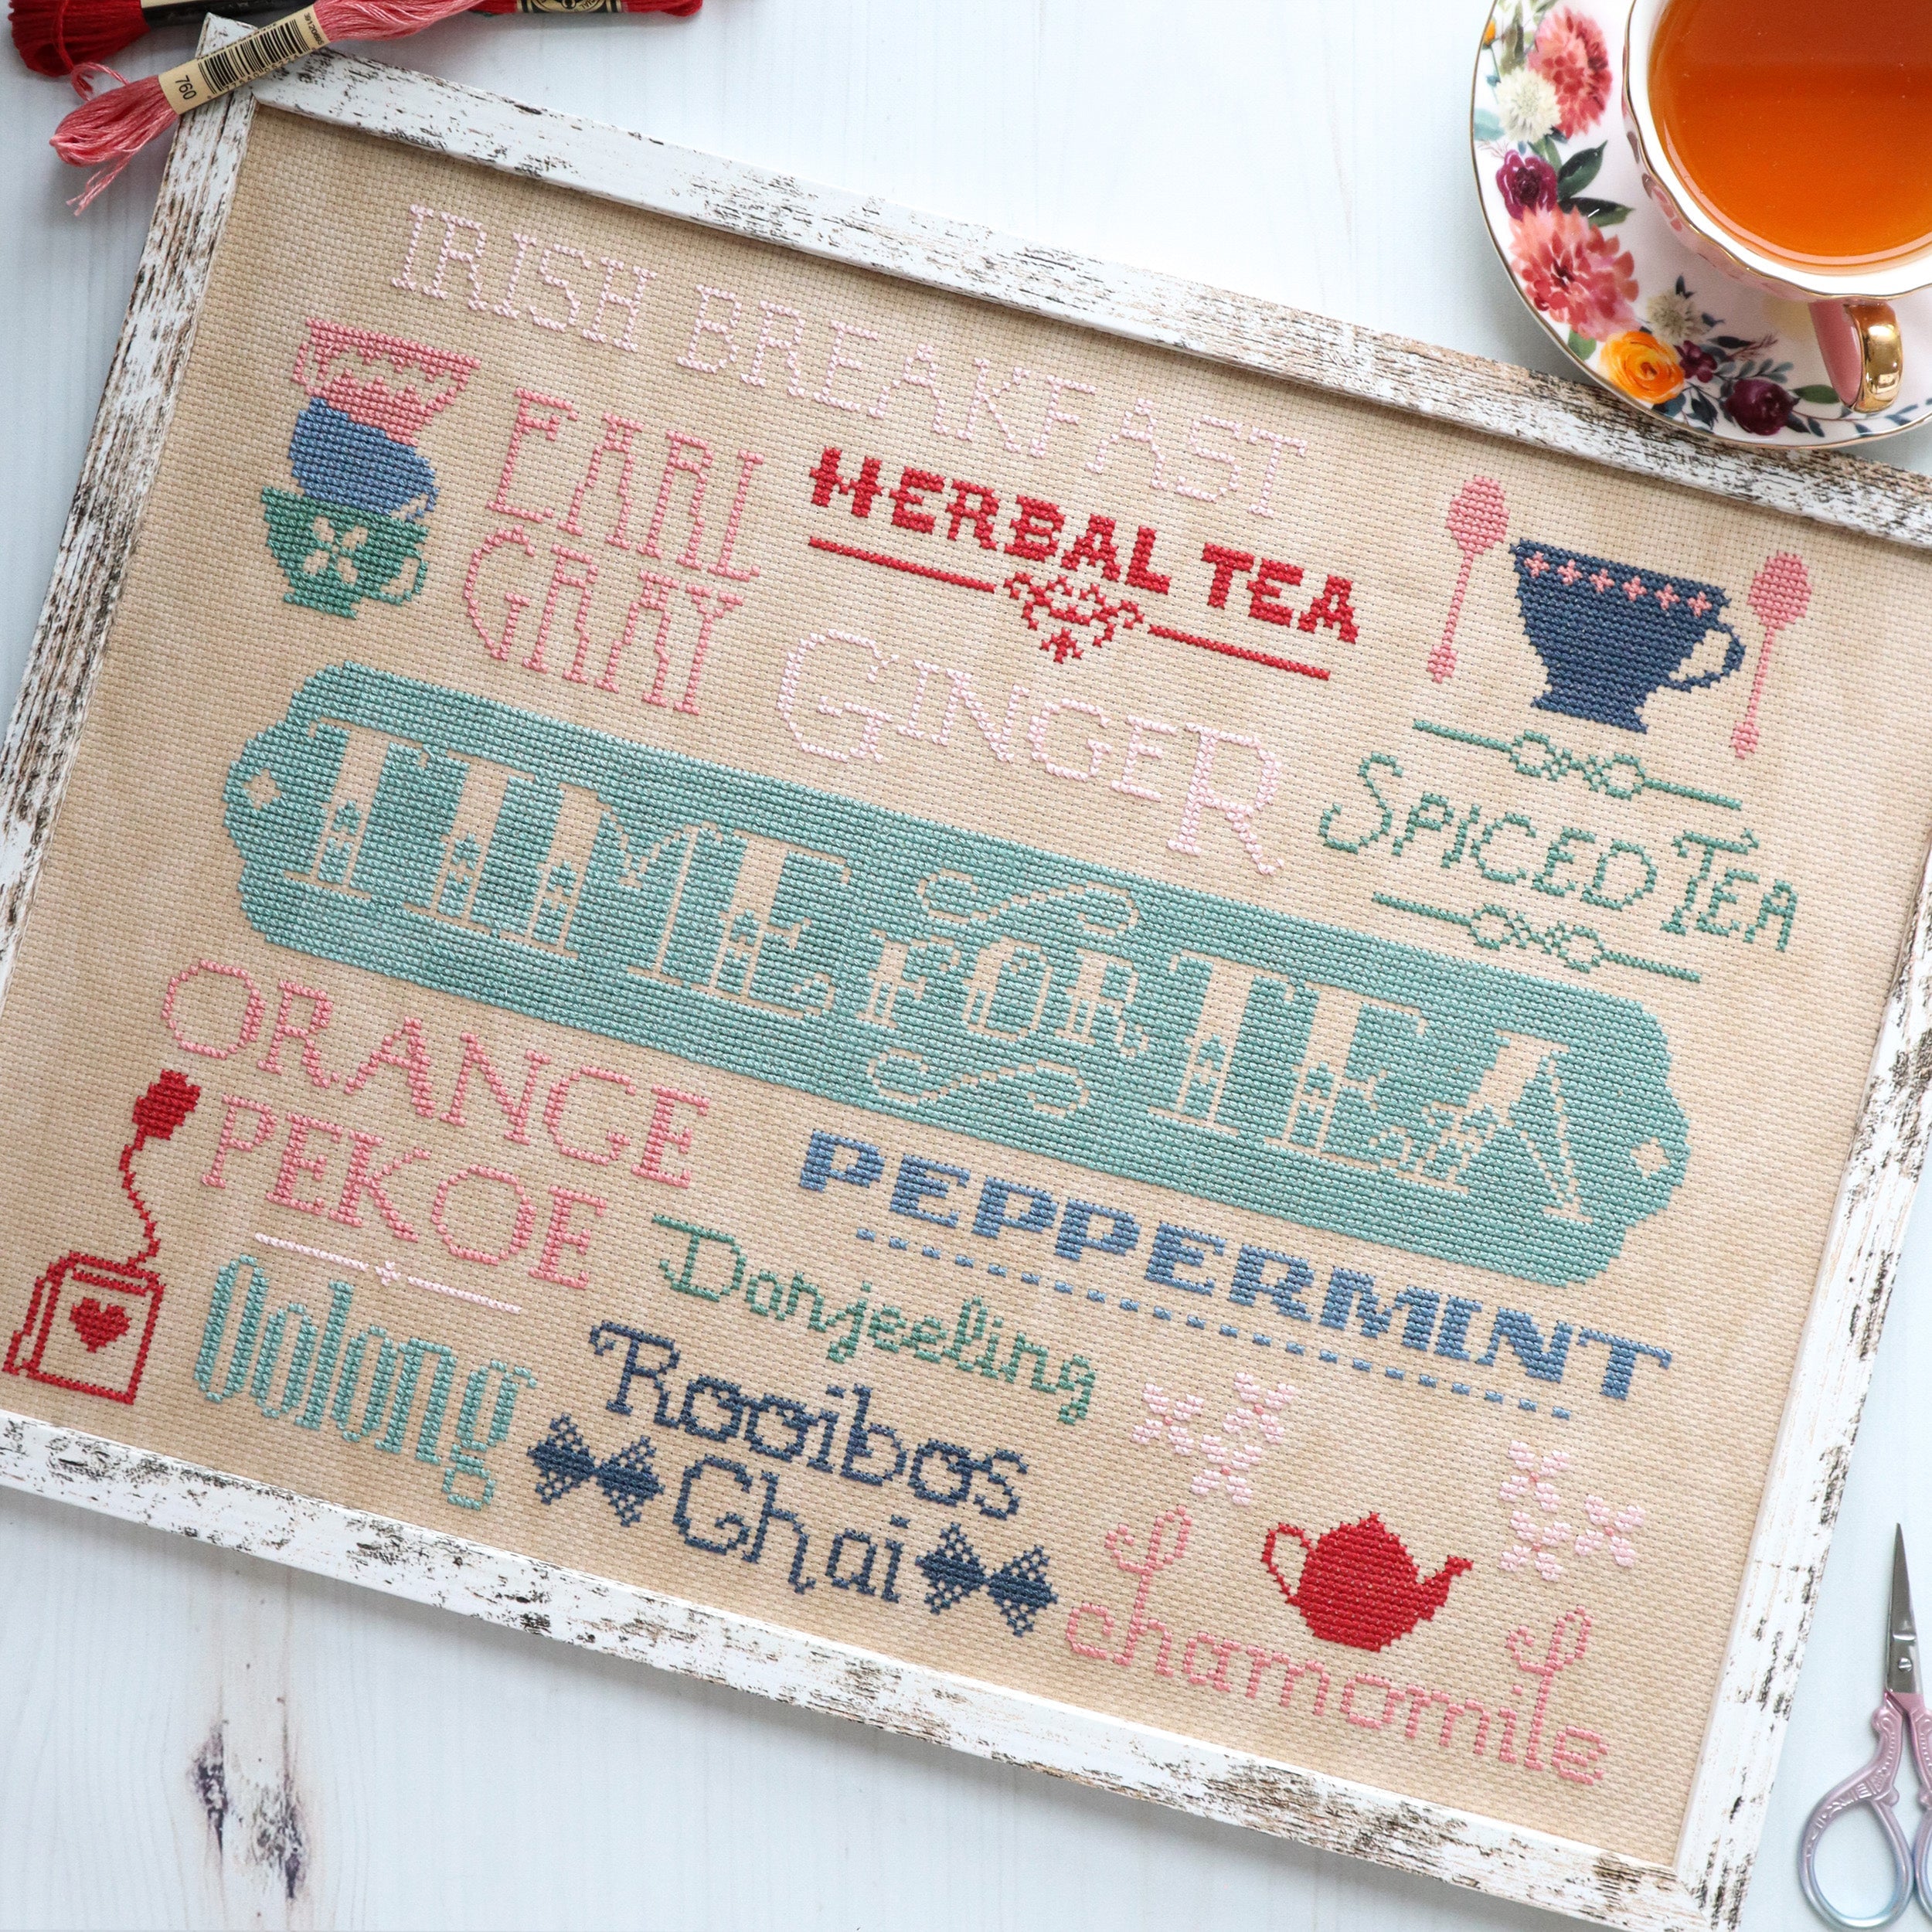 760
IRISH BREAKFAST
EARL
GRAY
HERBAL TEA
GINGER
SPICED TEA
TIME FOR TEA
ORANGE
PEKOE
PEPPERMINT
Darjeeling
Oolong
Rooibos
Chai
chamomile